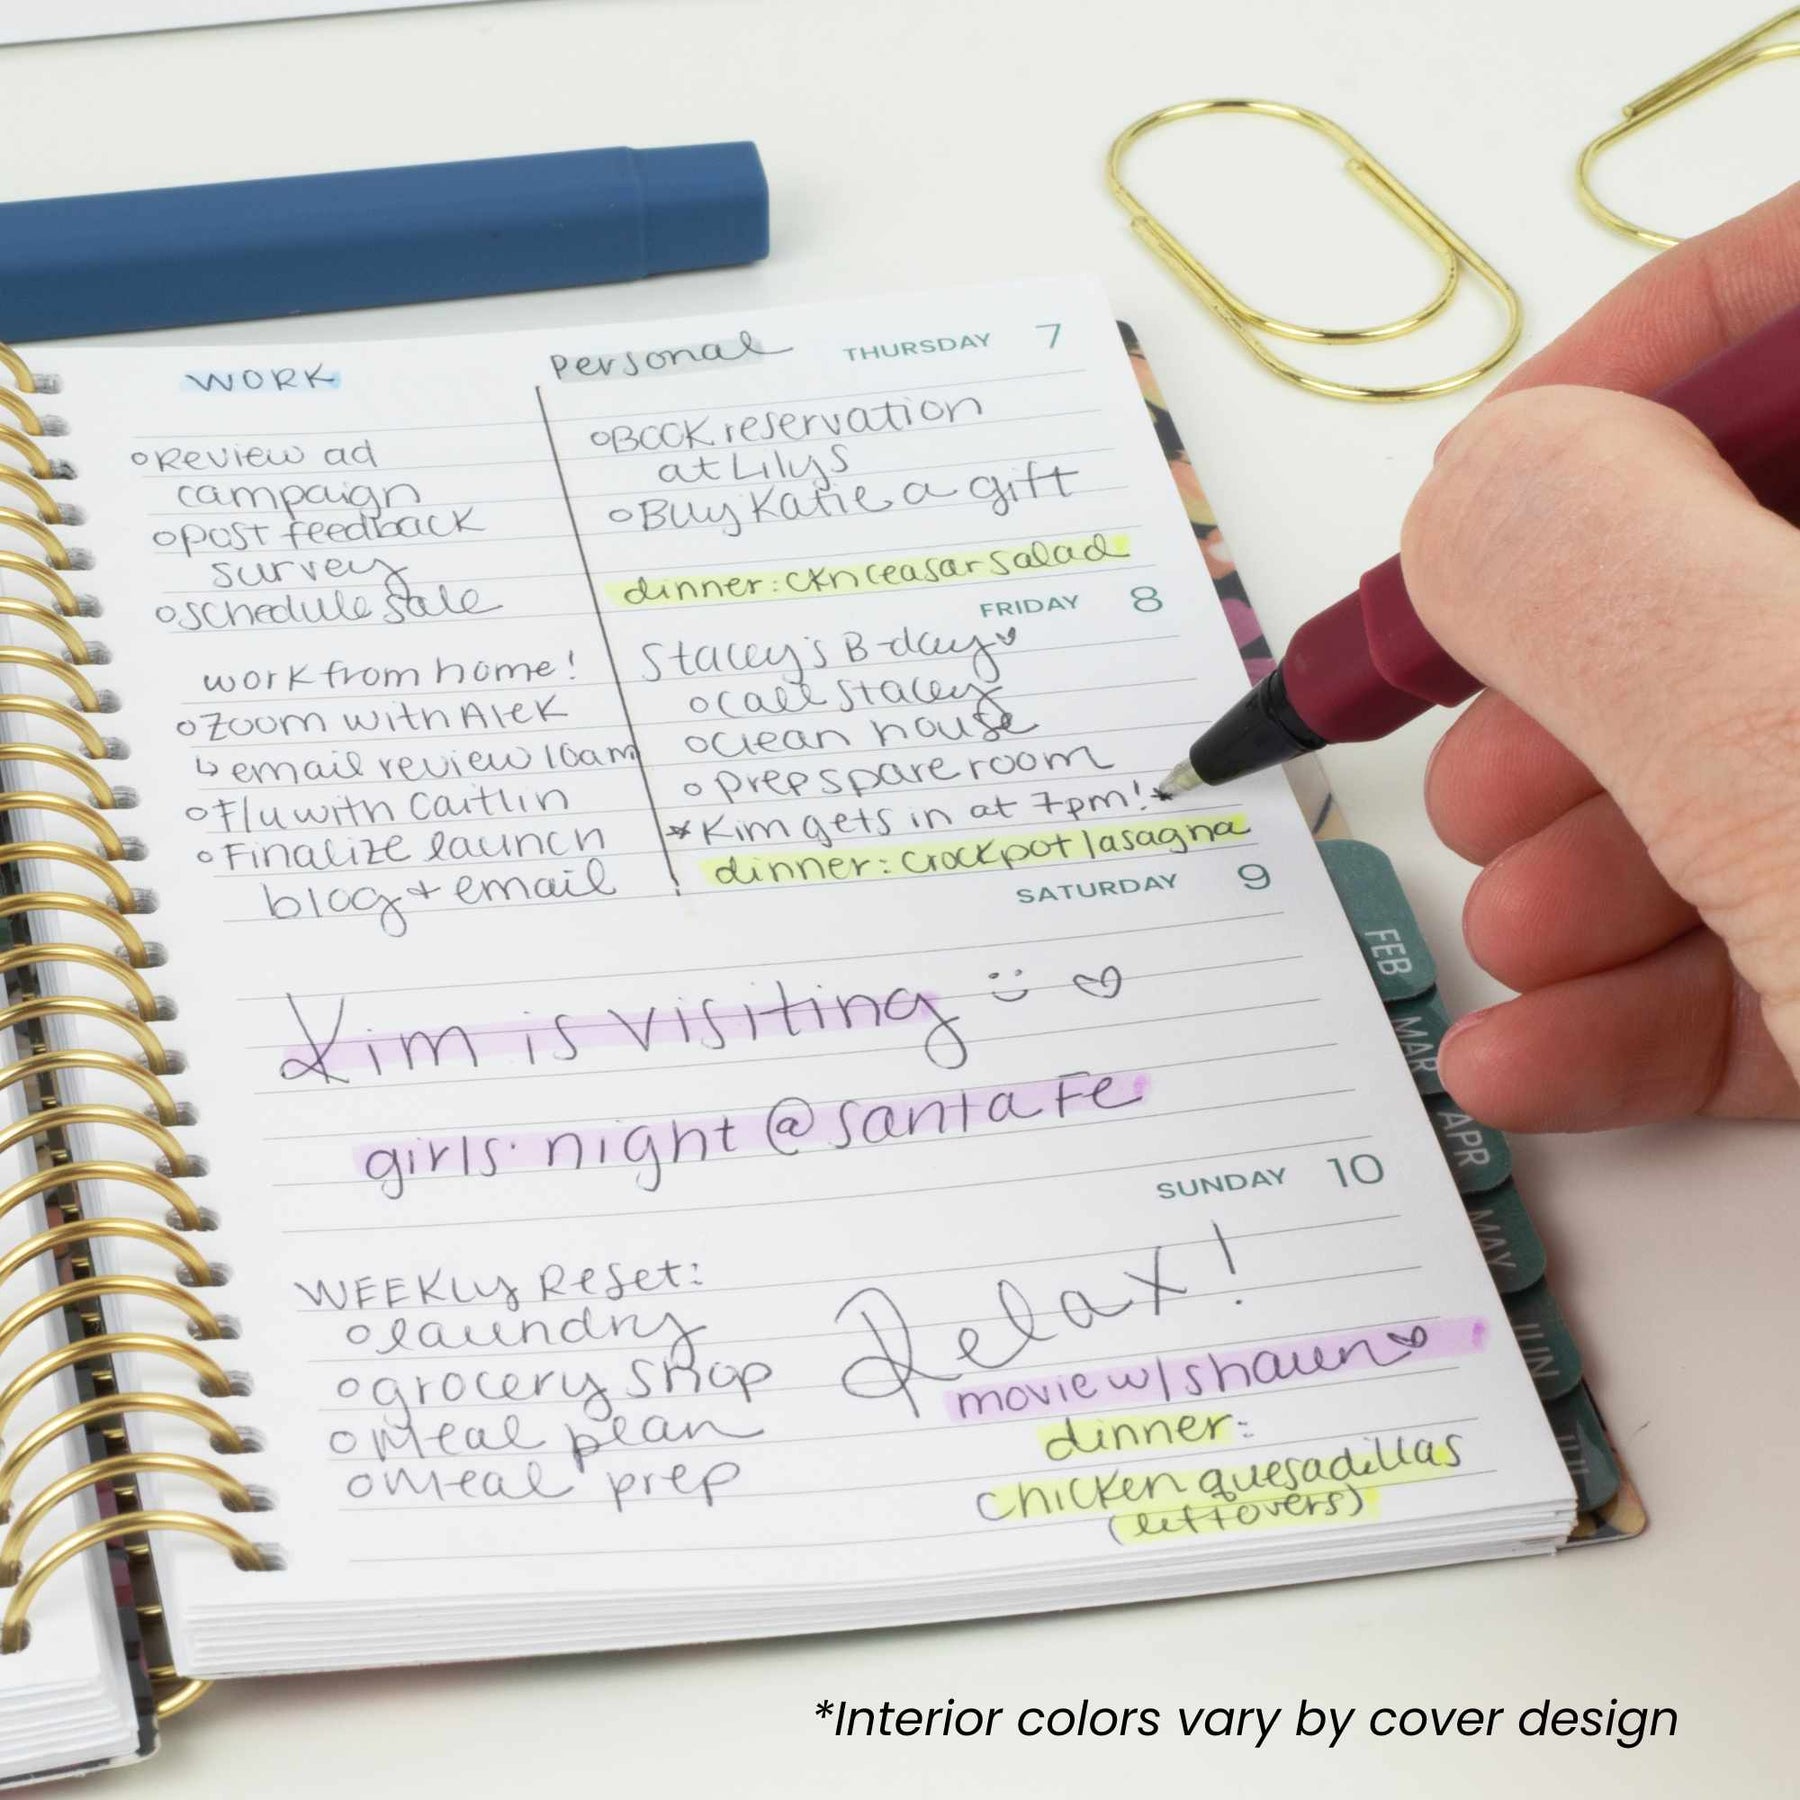 WORK
Personal
THURSDAY 7
Review ad
campaign
post feedback
survey
schedule sale
BOOK reservation
at Lilys
Buy Katie a gift
dinner: ckn ceasar salad
FRIDAY 8
work from home!
Zoom with Alek
↳ email review 10am
F/u with Caitlin
Finalize launch
blog + email
Stacey's B-day
call Stacey
clean house
prep spare room
*Kim gets in at 7pm!*
dinner: crockpot lasagna
SATURDAY 9
Kim is visiting
girls' night @ Santa Fe
SUNDAY 10
WEEKLY Reset:
laundry
grocery shop
Meal plan
Meal prep
Relax!
movie w/ shaun
dinner:
chicken quesadillas
(leftovers)
FEB
MAR
APR
MAY
JUN
JUL
*Interior colors vary by cover design